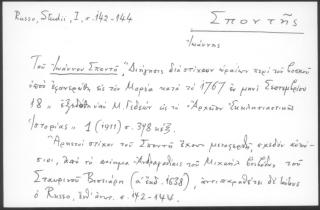 Russo, Studii, I, σ. 142-144
Σποντῆς
Ἰωάννης
Τοῦ Ἰωάννου Σποντῆ, "Διήγησις διὰ στίχων ὡραίων περὶ τοῦ
ὁποῦ ἐφανερώθη εἰς τὸν Μορέα κατὰ τὸ 1767 ἐν μηνὶ Σεπτεμβρίου
18" ἐξεδόθη ὑπὸ Μ. Γεδεὼν εἰς τὸ "Ἀρχεῖον Ἐκκλησιαστικῆς
Ἱστορίας" 1 (1911) σ. 348 κἑξ.
Ἀρκετοὶ στίχοι τοῦ Σποντῆ ἔχουν μεταφερθῆ, σχεδὸν αὐτού-
σιοι, ἀπὸ τὸ ποίημα Ἀνδραγαθίες τοῦ Μιχαὴλ Βοεβόδα τοῦ
Σταυρινοῦ Βιστιάρη (α' ἐκδ. 1638), ἀντιπαραθέτει δὲ
ὁ Russo, ἔνθ' ἀνωτ. σ. 142-144.